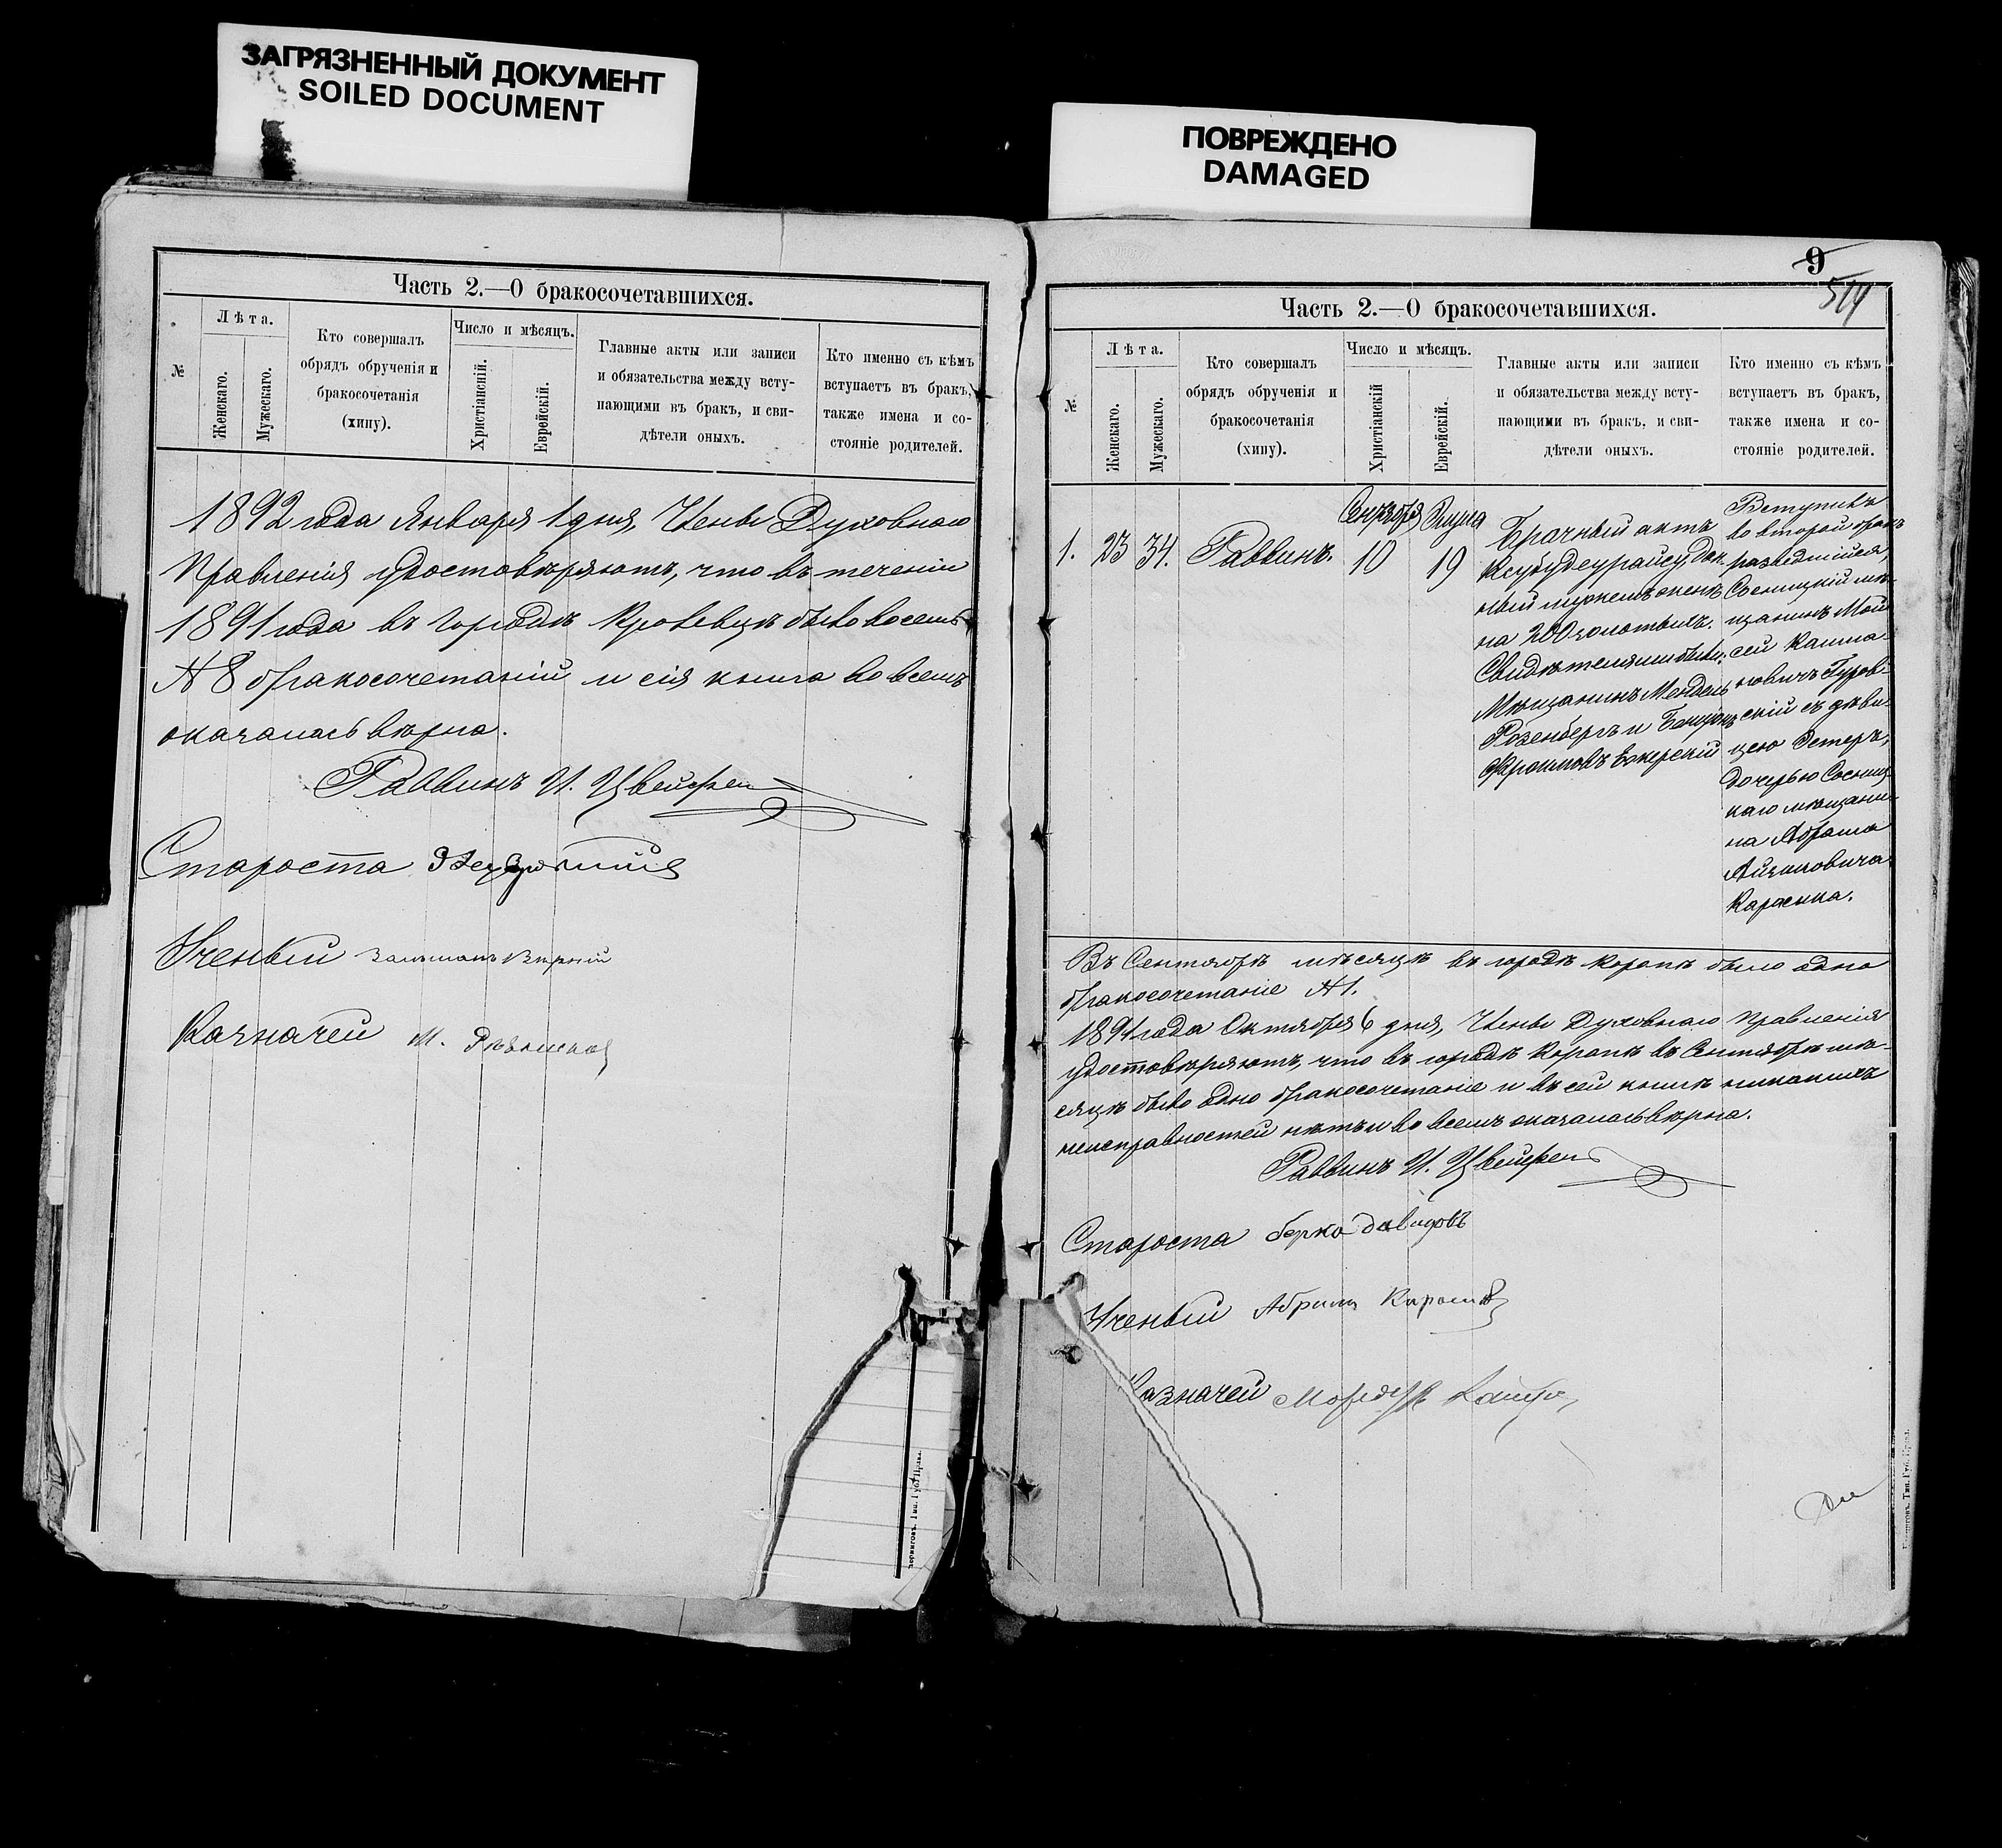 ЗАГРЯЗНЕННЫЙ ДОКУМЕНТ
SOILED DOCUMENT
ПОВРЕЖДЕНО
DAMAGED
Часть 2.—О бракосочетавшихся.
№
Лѣта.
Женскаго.
Мужескаго.
Кто совершалъ
обрядъ обрученія и
бракосочетанія
(хипу).
Число и мѣсяцъ.
Христіанскій.
Еврейскій.
Главные акты или записи
и обязательства между всту-
пающими въ бракъ, и сви-
дѣтели оныхъ.
Кто именно съ кѣмъ
вступаетъ въ бракъ,
также имена и со-
стояніе родителей.
1892 года Января 1 дня, Члены Духовнаго
Правленія удостовѣряютъ, что въ теченіи
1891 года въ городѣ Кролевцѣ было восемь
№ 8 бракосочетаній и сія книга во всемъ
оказалась вѣрна.
Раввинъ И. Цвейфель
Староста
Ученый Залманъ
Казначей М.
9
514
Часть 2.—О бракосочетавшихся.
№
Лѣта.
Женскаго.
Мужескаго.
Кто совершалъ
обрядъ обрученія и
бракосочетанія
(хипу).
Число и мѣсяцъ.
Христіанскій
Еврейскій.
Главные акты или записи
и обязательства между всту-
пающими въ бракъ, и сви-
дѣтели оныхъ.
Кто именно съ кѣмъ
вступаетъ въ бракъ,
также имена и со-
стояніе родителей.
1.
23
34.
Раввинъ.
Сентября
10
Элула
19
Брачный актъ
Ксубу деурайсу, дан-
ный мужемъ женѣ
на 200 золотыхъ.
Свидѣтелями были:
Мѣщанинъ Мендель
Розенбергъ и
Фроимовъ
Вступилъ
во второй бракъ
разведшійся,
Сосницкій мѣ-
щанинъ Мой
сей Калма-
новичъ Гуров-
скій съ дѣви-
цею Эстеръ,
дочерью Сосниц-
каго мѣщани-
на Абрама
Айзиковича
Карасика.
Въ Сентябрѣ мѣсяцѣ въ городѣ Коропѣ было одно
бракосочетаніе № 1.
1891 года Октября 6 дня, Члены Духовнаго Правленія
удостовѣряютъ, что въ городѣ Коропѣ въ Сентябрѣ мѣ-
сяцѣ было одно бракосочетаніе и въ сей книгѣ никакихъ
неисправностей нѣтъ и во всемъ оказалась вѣрна.
Раввинъ И. Цвейфель
Староста Берка Давидовъ
Ученый Абрамъ Карасикъ
Казначей Мордух